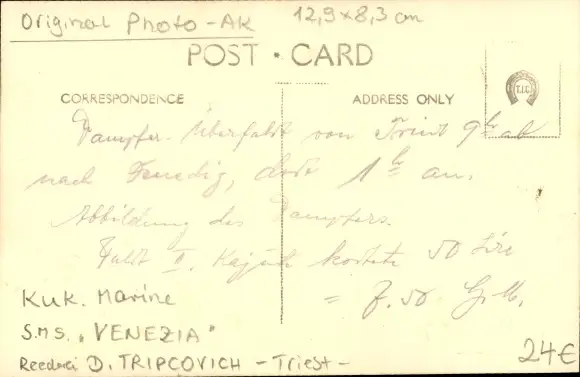 Original Photo - AK 12,9 x 8,3 cm
POST · CARD
T.I.C.
CORRESPONDENCE
ADDRESS ONLY
Dampfer-Überfahrt von Triest 9 h ab
nach Venedig, dort 1 h an.
Abbildung des Dampfers.
Fahrt II. Kajüte kostete 50 Lire
= 7.50 G.M.
KuK. Marine
S.M.S. „VENEZIA"
Reederei D. TRIPCOVICH - Triest -
24€